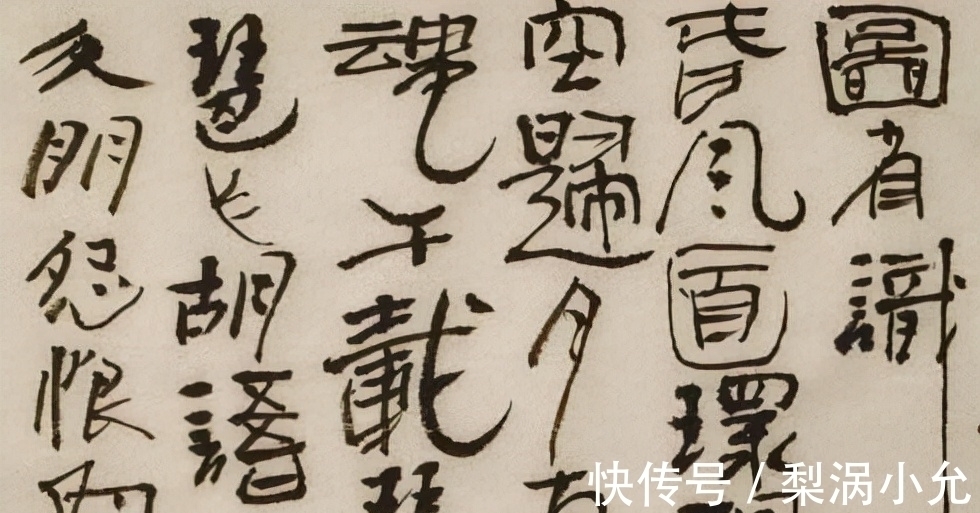 圖省識
春風面環
空歸月
魂千載琵
琶作胡語
分明怨恨曲
快传号 / 梨涡小允